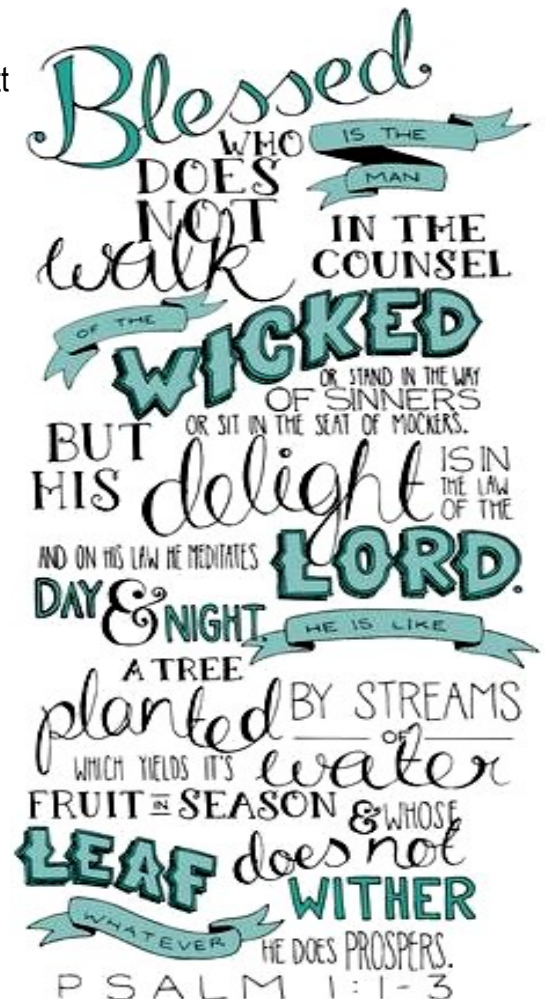 tt
Blessed
IS THE
MAN
WHO
DOES
NOT
walk
IN THE
COUNSEL
OF THE
WICKED
OR STAND IN THE WAY
OF SINNERS
OR SIT IN THE SEAT OF MOCKERS.
BUT
HIS
delight
IS IN
THE LAW
OF THE
LORD.
AND ON HIS LAW HE MEDITATES
DAY & NIGHT.
HE IS LIKE
A TREE
planted
BY STREAMS
OF
water
WHICH YIELDS IT'S
FRUIT IN SEASON
& WHOSE
LEAF does not
WITHER
WHATEVER
HE DOES PROSPERS.
PSALM 1:1-3